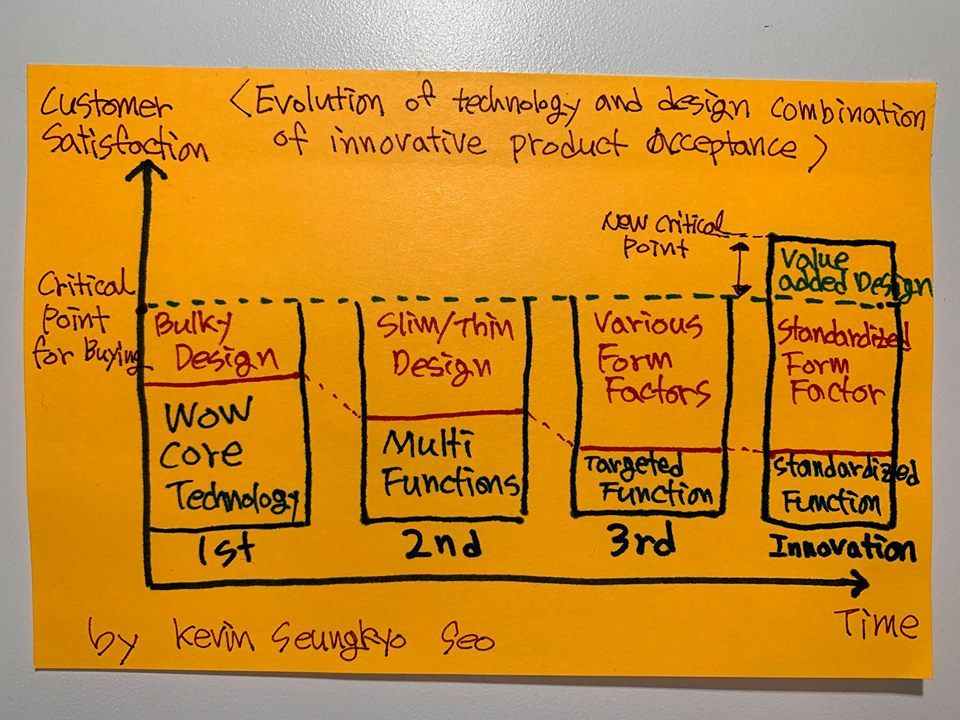 Customer
Satisfaction
<Evolution of technology and design combination
of innovative product acceptance>
New Critical
Point
Value
added Design
Critical
Point
for Buying
Bulky
Design
Slim/Thin
Design
Various
Form
Factors
Standardized
Form
Factor
Wow
Core
Technology
Multi
Functions
Targeted
Function
Standardized
Function
1st
2nd
3rd
Innovation
Time
by Kevin Seungkyo Seo